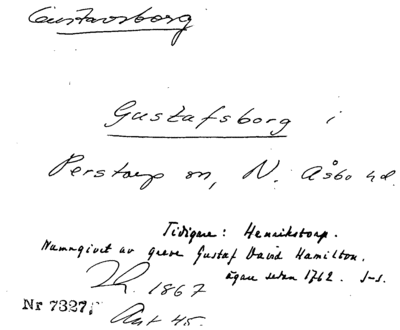 Gustavsborg
Gustafsborg i
Perstorp sn, N. Åsbo hd.
Tidigare: Henrikstorp.
Namngivet av greve Gustaf David Hamilton.
ägare sedan 1762. J-s.
1867
Nr 7327.
Ant 45.